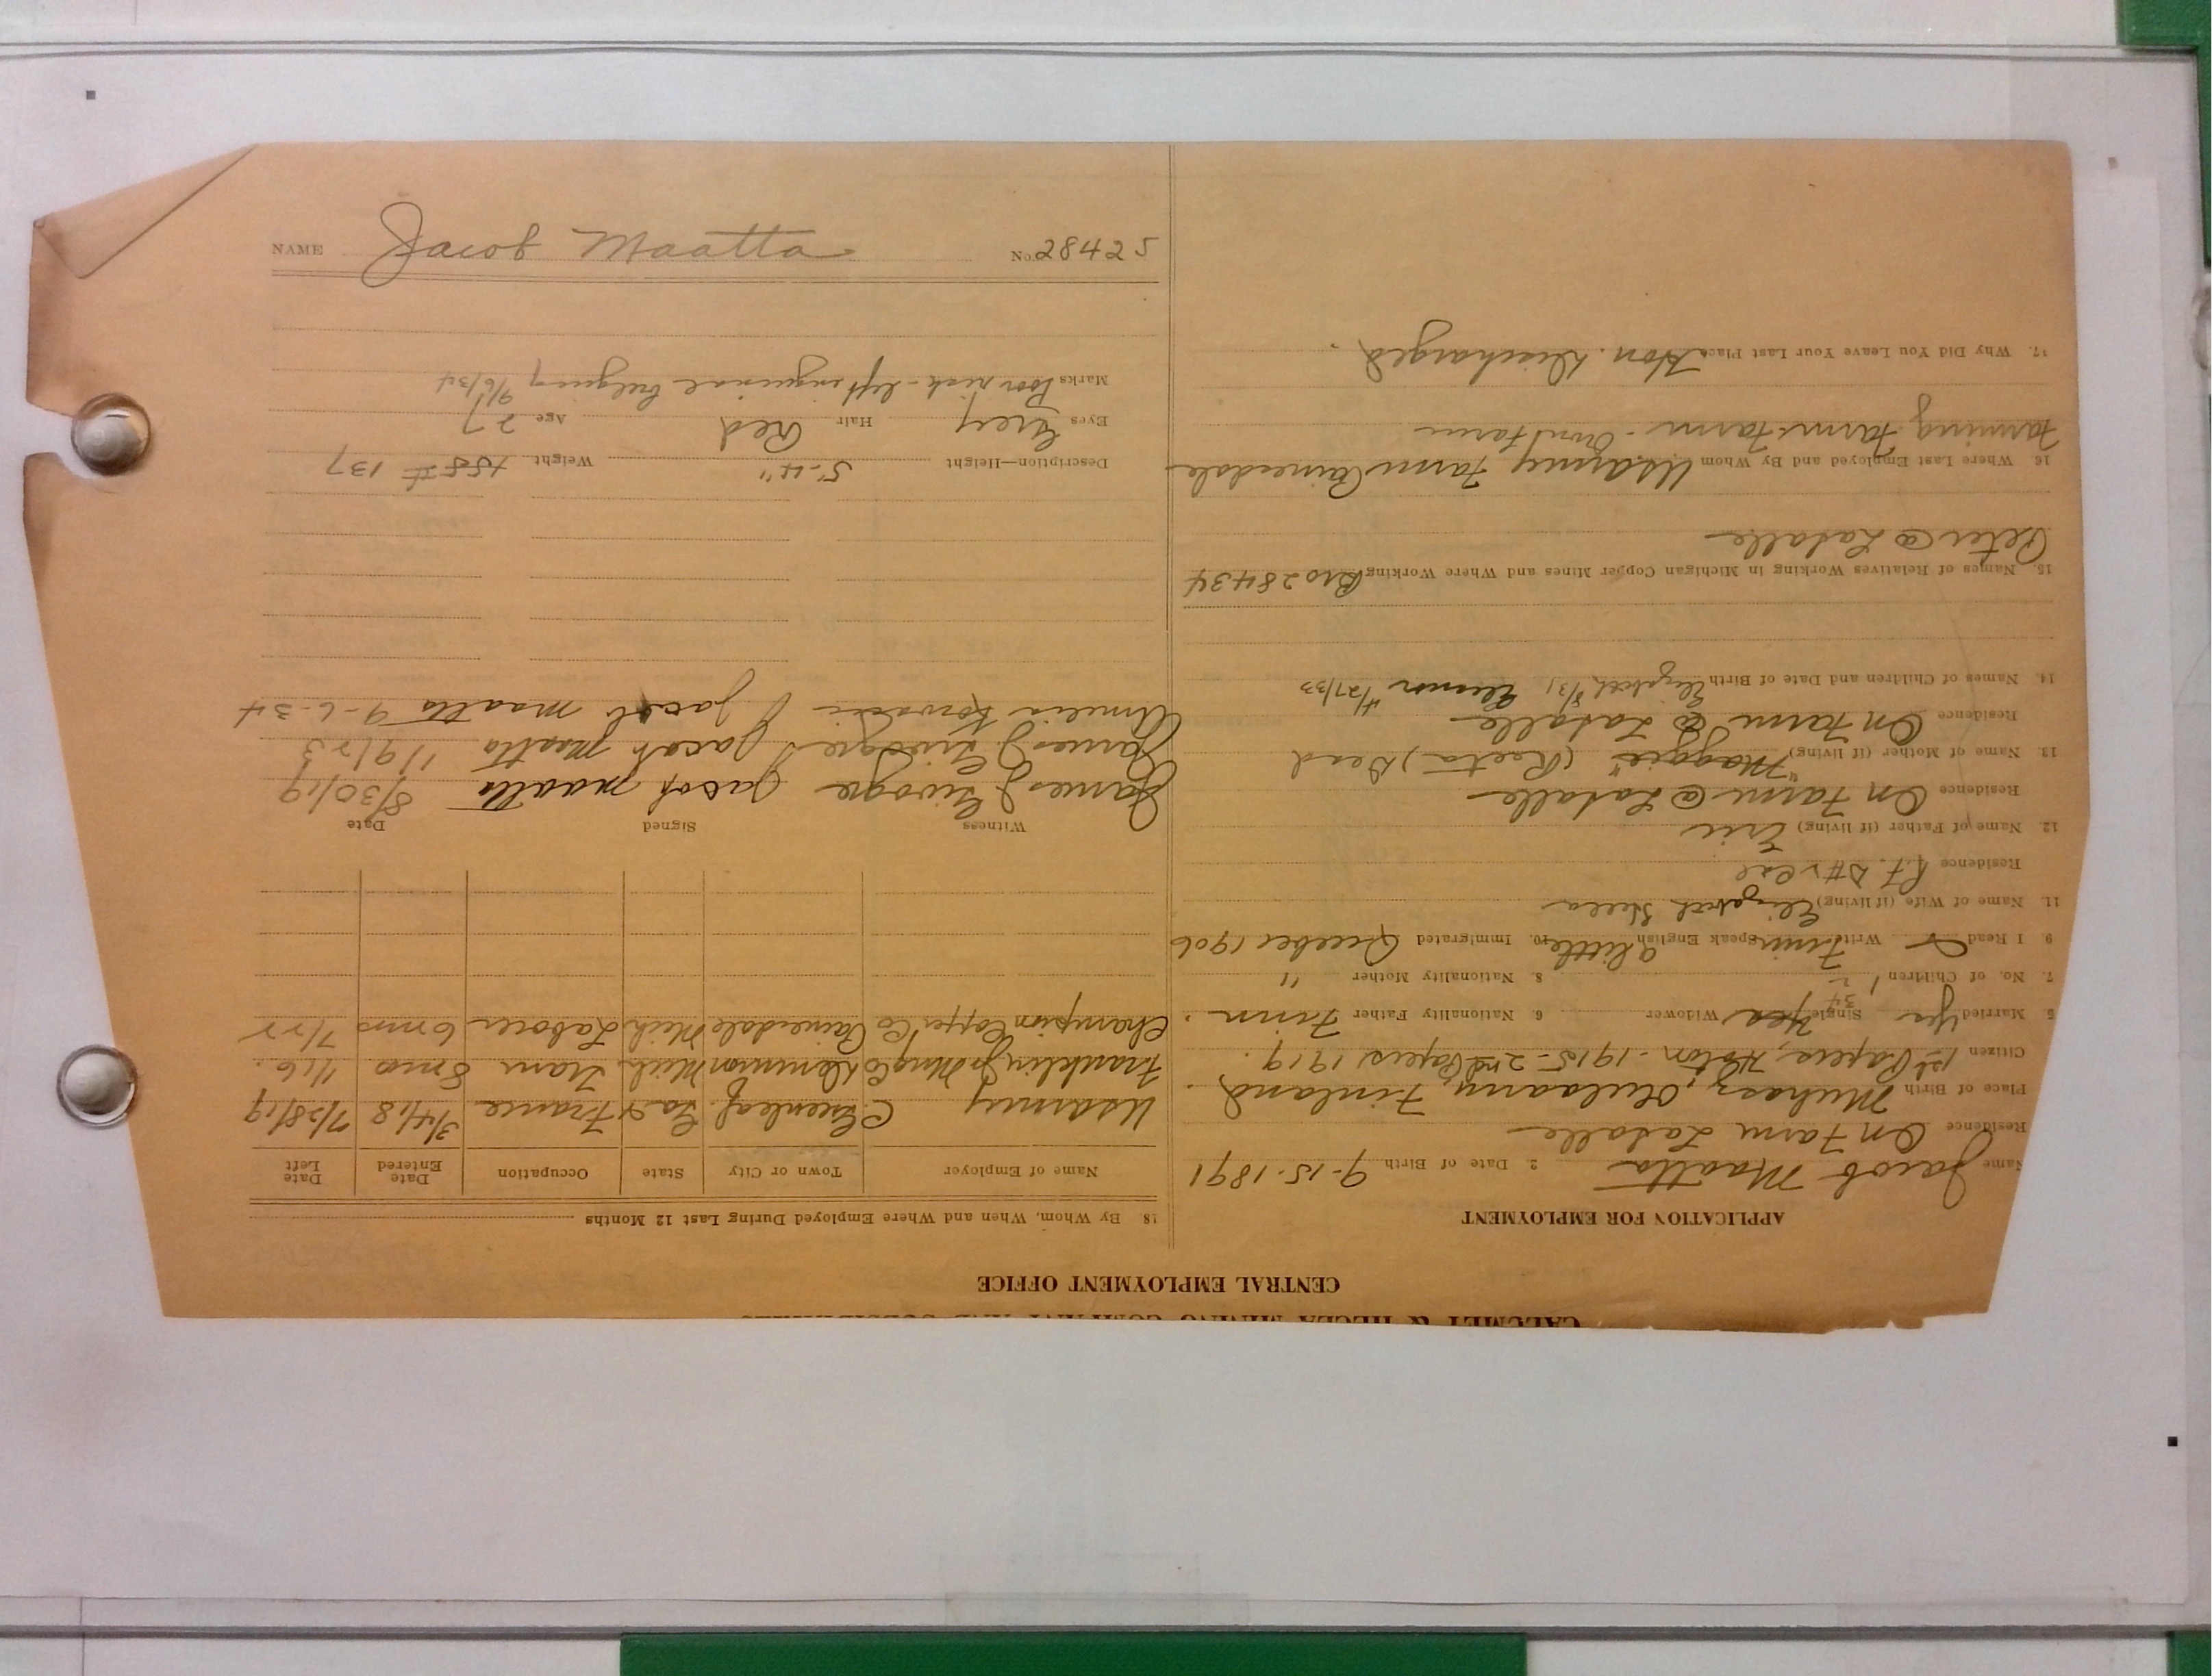 CALUMET & HECLA MINING COMPANY AND SUBSIDIARIES
CENTRAL EMPLOYMENT OFFICE
APPLICATION FOR EMPLOYMENT
Name Jacob Maatta 2. Date of Birth 9-15-1891
Residence On Farm Lasalle
Place of Birth Muhos, Finland
Citizen 1st Papers, Hoton-1915-2nd Papers 1919.
5. Married Yes Single Yes Widower 6. Nationality Father Finn.
34
7. No. of Children 1 2 8. Nationality Mother "
9. I Read Write Finn Speak English a little 10. Immigrated 1906
11. Name of Wife (if living) Elizabeth
Residence
12. Name of Father (if living) Eric
Residence On Farm @ Lasalle
13. Name of Mother (if living) "Maggie" (Reeta) Dead
Residence On Farm @ Lasalle
14. Names of Children and Date of Birth Elizabeth 8/31 4/27/33
15. Names of Relatives Working in Michigan Copper Mines and Where Working Bro 28434
Peter @ Lasalle
16. Where Last Employed and By Whom US Army Farm Painesdale
Farming Farm - Own Farm
17. Why Did You Leave Your Last Place Hon. Discharged.
18. By Whom, When and Where Employed During Last 12 Months
Name of Employer Town or City State Occupation Date Entered Date Left
US Army C. Greenleaf La & France 3/4/18 7/28/19
Franklin Jr Mng Co Demmon Mich Tram 8 mos 1/16.
Champion Copper Co Painesdale Mich Laborer 6 mos 7/22
Witness Signed Date
James J Jacob Maatta 8/30/19
James J Jacob Maatta 1/9/23
Amelia Jacob Maatta 9-6-34
Description—Height 5'-4" Weight 155# 137
Eyes Grey Hair Red Age 27
Marks Poor risk - left inguinal bulging 9/6/34
NAME Jacob Maatta No. 28425